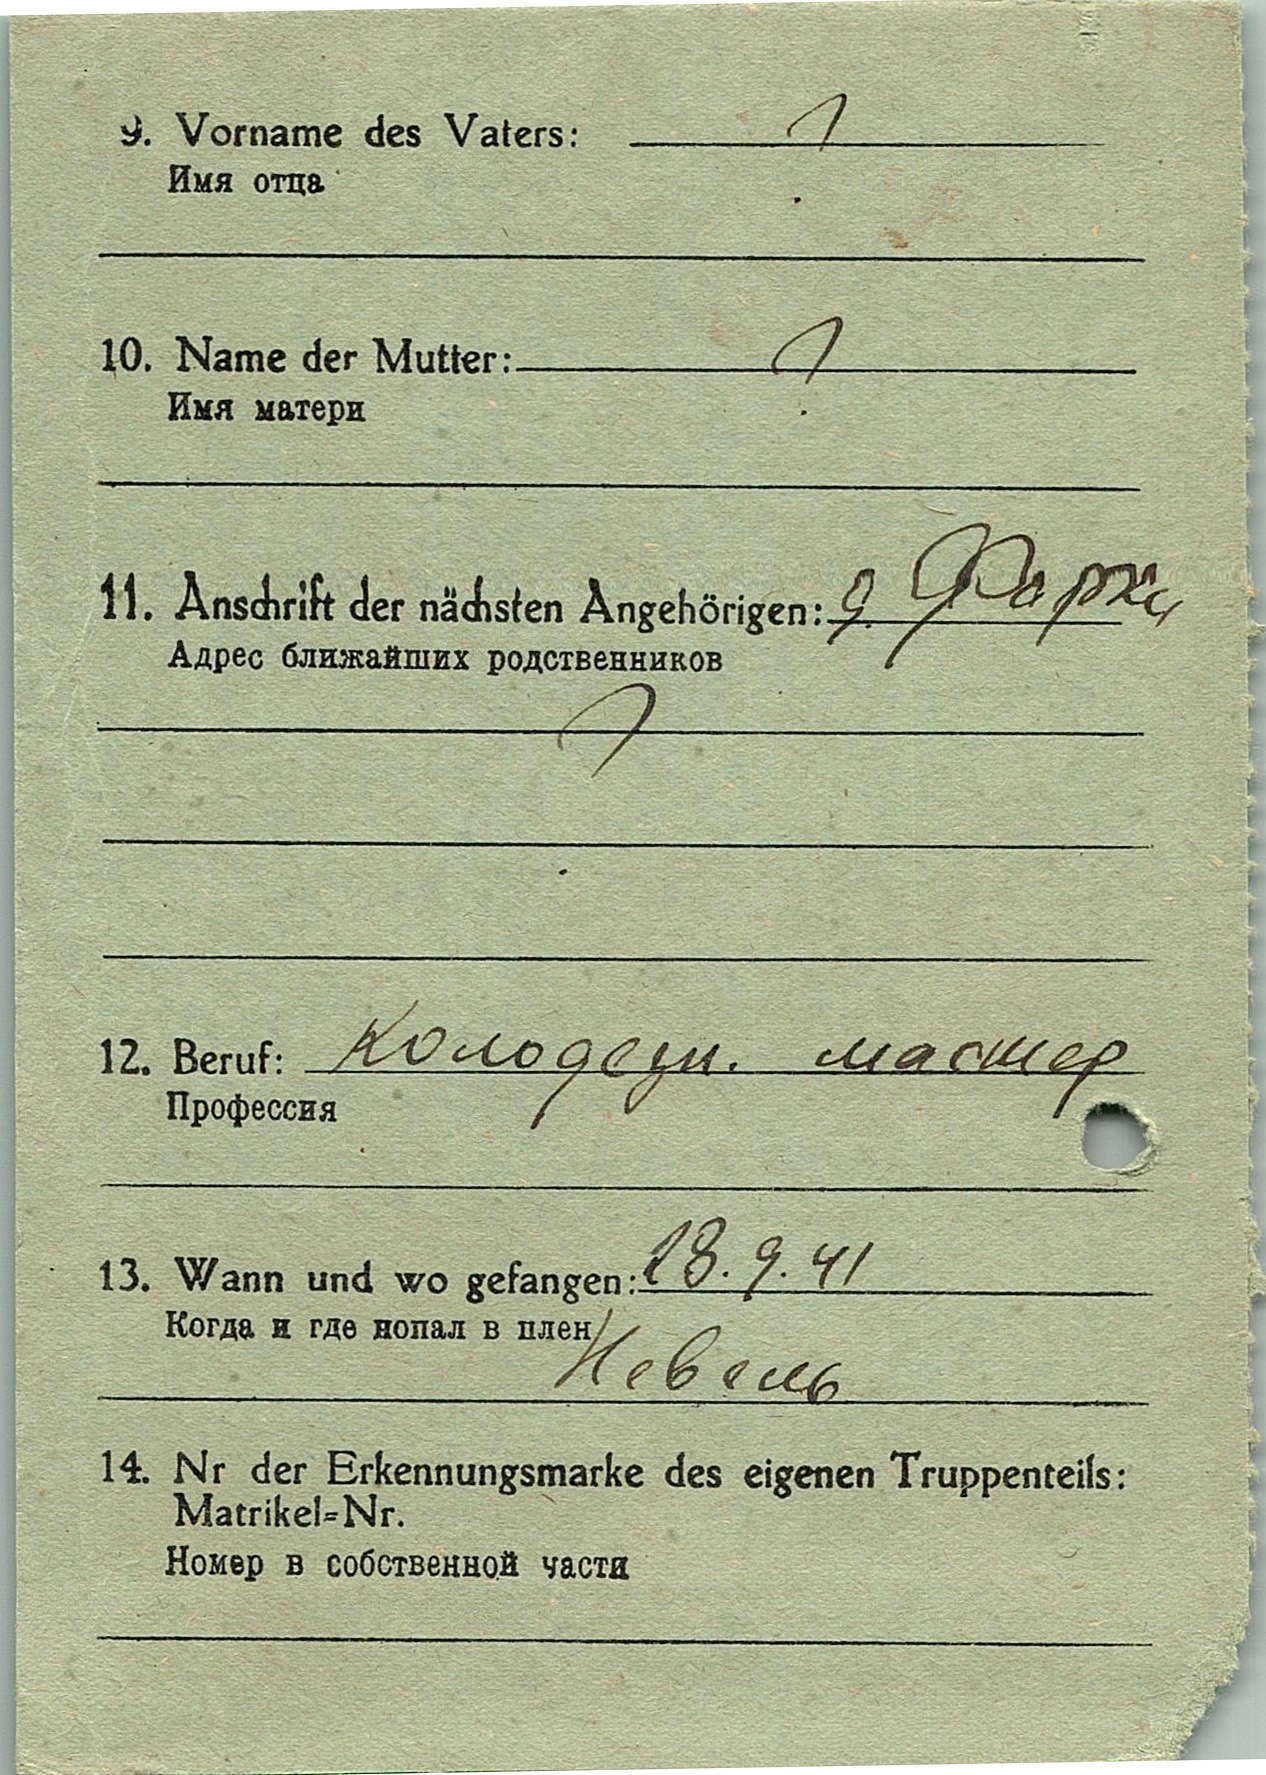 9. Vorname des Vaters: ?
Имя отца
10. Name der Mutter: ?
Имя матери
11. Anschrift der nächsten Angehörigen: д. Фарки
Адрес ближайших родственников
?
12. Beruf: Колодезн. мастер
Профессия
13. Wann und wo gefangen: 28.9.41
Когда и где попал в плен
Невель
14. Nr der Erkennungsmarke des eigenen Truppenteils:
Matrikel=Nr.
Номер в собственной части